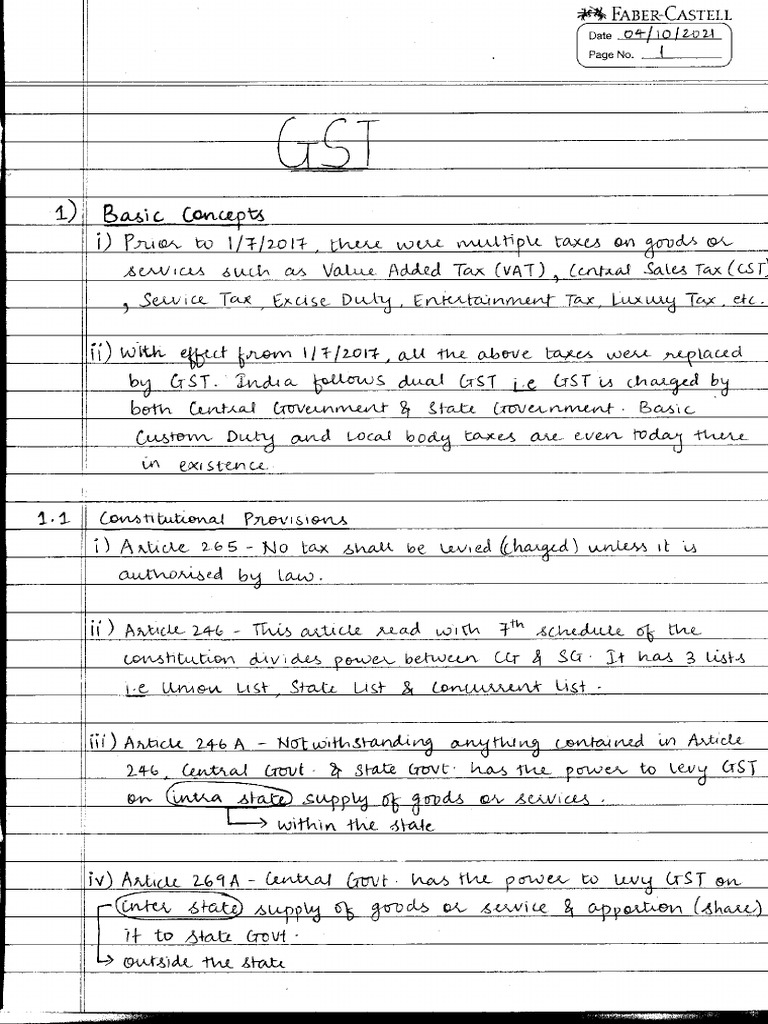 FABER-CASTELL
Date 04/10/2021
Page No. 1
GST
1) Basic Concepts
i) Prior to 1/7/2017, there were multiple taxes on goods or
services such as Value Added Tax (VAT), Central Sales Tax (CST)
, Service Tax, Excise Duty, Entertainment Tax, Luxury Tax, etc.
ii) With effect from 1/7/2017, all the above taxes were replaced
by GST. India follows dual GST i.e GST is charged by
both Central Government & State Government. Basic
Custom Duty and Local body taxes are even today there
in existence.
1.1 Constitutional Provisions
i) Article 265 - No tax shall be levied (charged) unless it is
authorised by law.
ii) Article 246 - This article read with 7th schedule of the
constitution divides power between CG & SG. It has 3 lists
i.e Union List, State List & Concurrent List.
iii) Article 246 A - Notwithstanding anything contained in Article
246, Central Govt. & State Govt. has the power to levy GST
on intra state supply of goods or services.
within the state
iv) Article 269A - Central Govt. has the power to levy GST on
inter state supply of goods or service & apportion (share)
it to State Govt.
outside the state